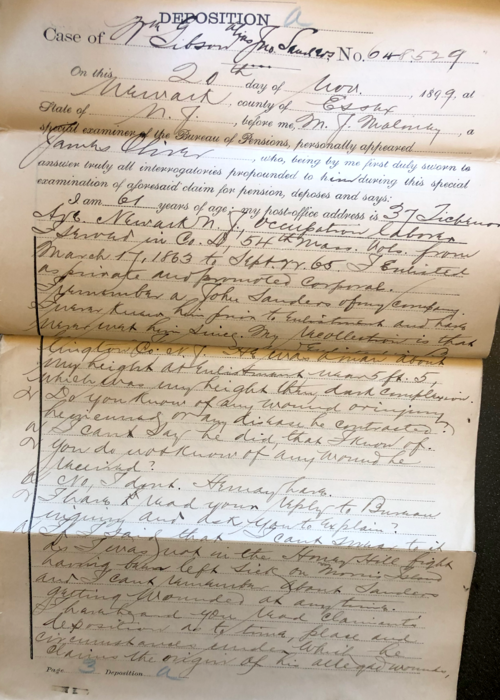 DEPOSITION A
Case of Wm G. Gibson alias Jno. Sanders, No. 648,529
On this 20th day of Nov., 1899, at
Newark, county of Essex
State of N. J., before me, M. J. Maloney, a
special examiner of the Bureau of Pensions, personally appeared
James Oliver, who, being by me first duly sworn to
answer truly all interrogatories propounded to him during this special
examination of aforesaid claim for pension, deposes and says:
I am 61 years of age; my post-office address is 37
Ave. Newark N. J., Occupation laborer
I served in Co. 54th Mass. Vols. from
March 17, 1863 to Sept. 65. I enlisted
as private and promoted corporal.
I remember a John Sanders of my company.
I never knew him prior to enlistment and have
never met him since. My recollection is that
Co. N. J. He was a man about
my height at enlistment near 5 ft. 5,
which was my height then, dark complexion.
Q Do you know of any wound or injury
he incurred or any disease he contracted?
A I cant say he did that I know of.
Q You do not know of any wound he
received?
A No, I dont. He may have.
Q I have read your reply to Bureau
inquiry and ask you to explain?
A I cant swear to it
as I was not in the Honey Hill fight
having been left sick on Morris Island
and I cant remember about Sanders
getting wounded at any time.
I have heard you read claimants
deposition as to time, place and
circumstances under which he
claims the origin of his alleged wounds,
Page 3 Deposition A